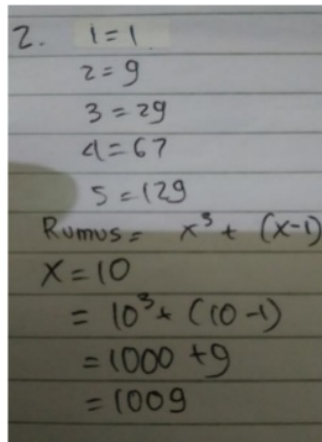 2. 1 = 1
2 = 9
3 = 29
4 = 67
5 = 129
Rumus = x³ + (x-1)
X = 10
= 10³ + (10-1)
= 1000 + 9
= 1009